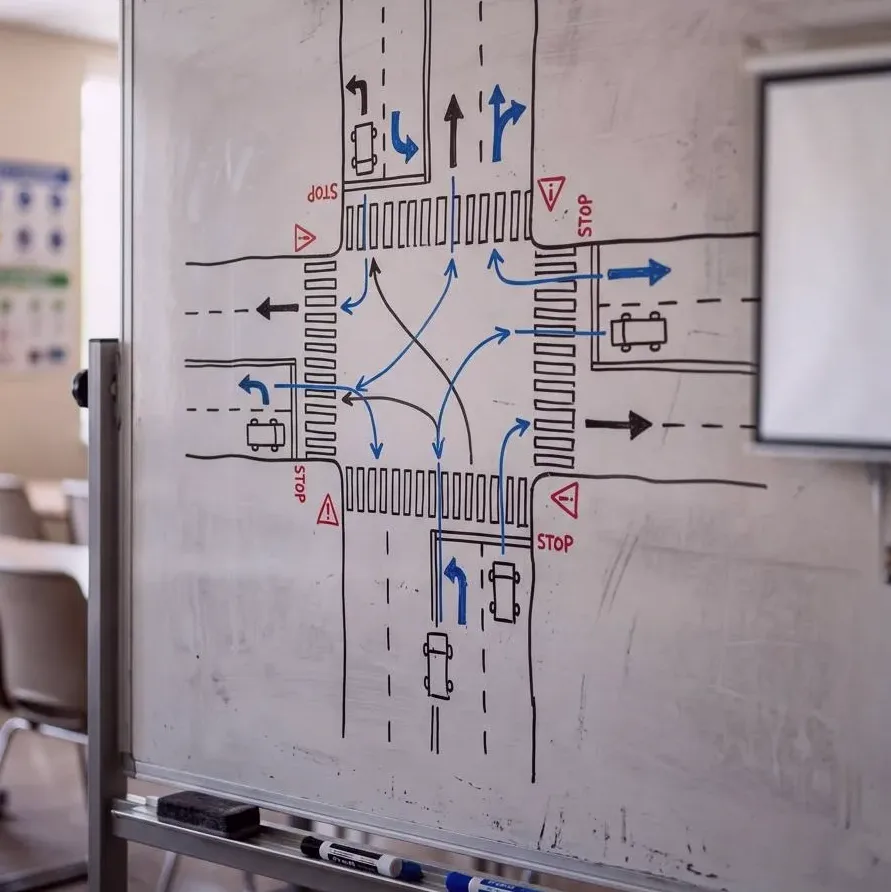 STOP
STOP
STOP
STOP